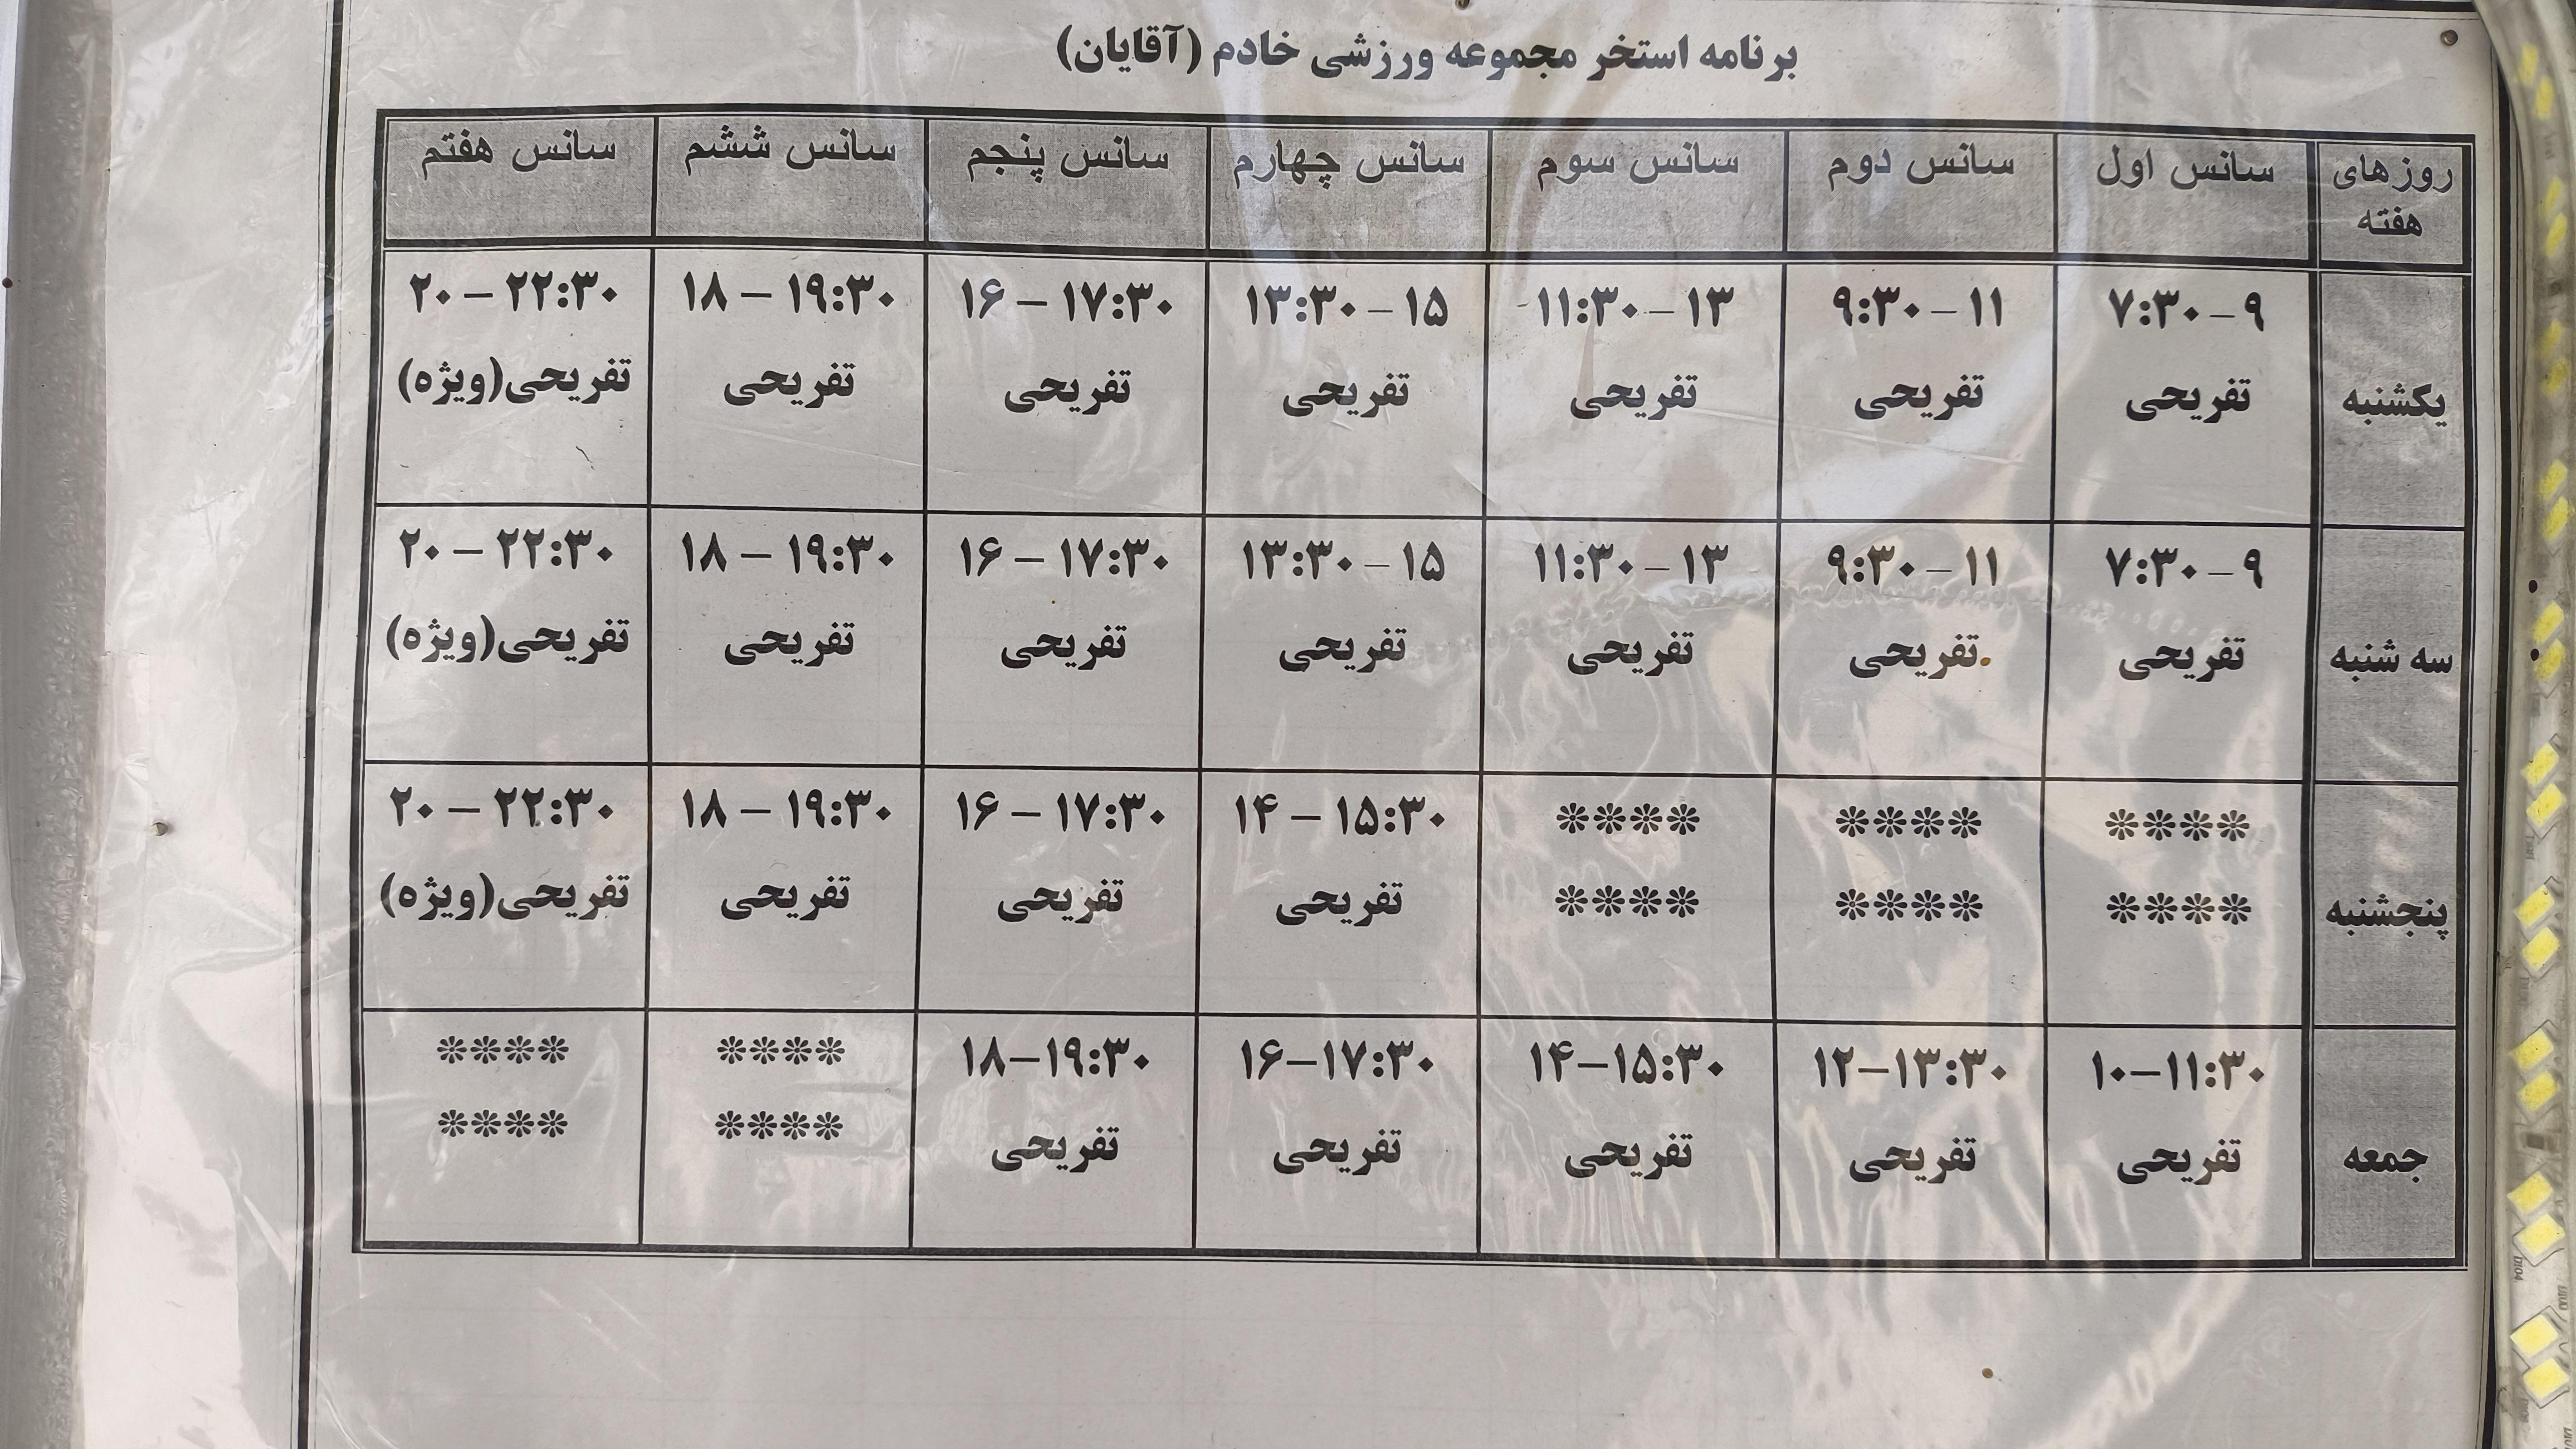 برنامه استخر مجموعه ورزشی خادم (آقایان)
روزهای هفته	سانس اول	سانس دوم	سانس سوم	سانس چهارم	سانس پنجم	سانس ششم	سانس هفتم
یکشنبه	۷:۳۰-۹	۹:۳۰-۱۱	۱۱:۳۰-۱۳	۱۳:۳۰-۱۵	۱۶ – ۱۷:۳۰	۱۸ – ۱۹:۳۰	۲۰ – ۲۲:۳۰
تفریحی	تفریحی	تفریحی	تفریحی	تفریحی	تفریحی	تفریحی(ویژه)
سه شنبه	۷:۳۰-۹	۹:۳۰-۱۱	۱۱:۳۰-۱۳	۱۳:۳۰-۱۵	۱۶ – ۱۷:۳۰	۱۸ – ۱۹:۳۰	۲۰ – ۲۲:۳۰
تفریحی	تفریحی	تفریحی	تفریحی	تفریحی	تفریحی	تفریحی(ویژه)
پنجشنبه	****	****	****	۱۴ – ۱۵:۳۰	۱۶ – ۱۷:۳۰	۱۸ – ۱۹:۳۰	۲۰ – ۲۲:۳۰
****	****	****	تفریحی	تفریحی	تفریحی	تفریحی(ویژه)
جمعه	۱۰–۱۱:۳۰	۱۲–۱۳:۳۰	۱۴–۱۵:۳۰	۱۶–۱۷:۳۰	۱۸–۱۹:۳۰	****	****
تفریحی	تفریحی	تفریحی	تفریحی	تفریحی	****	****